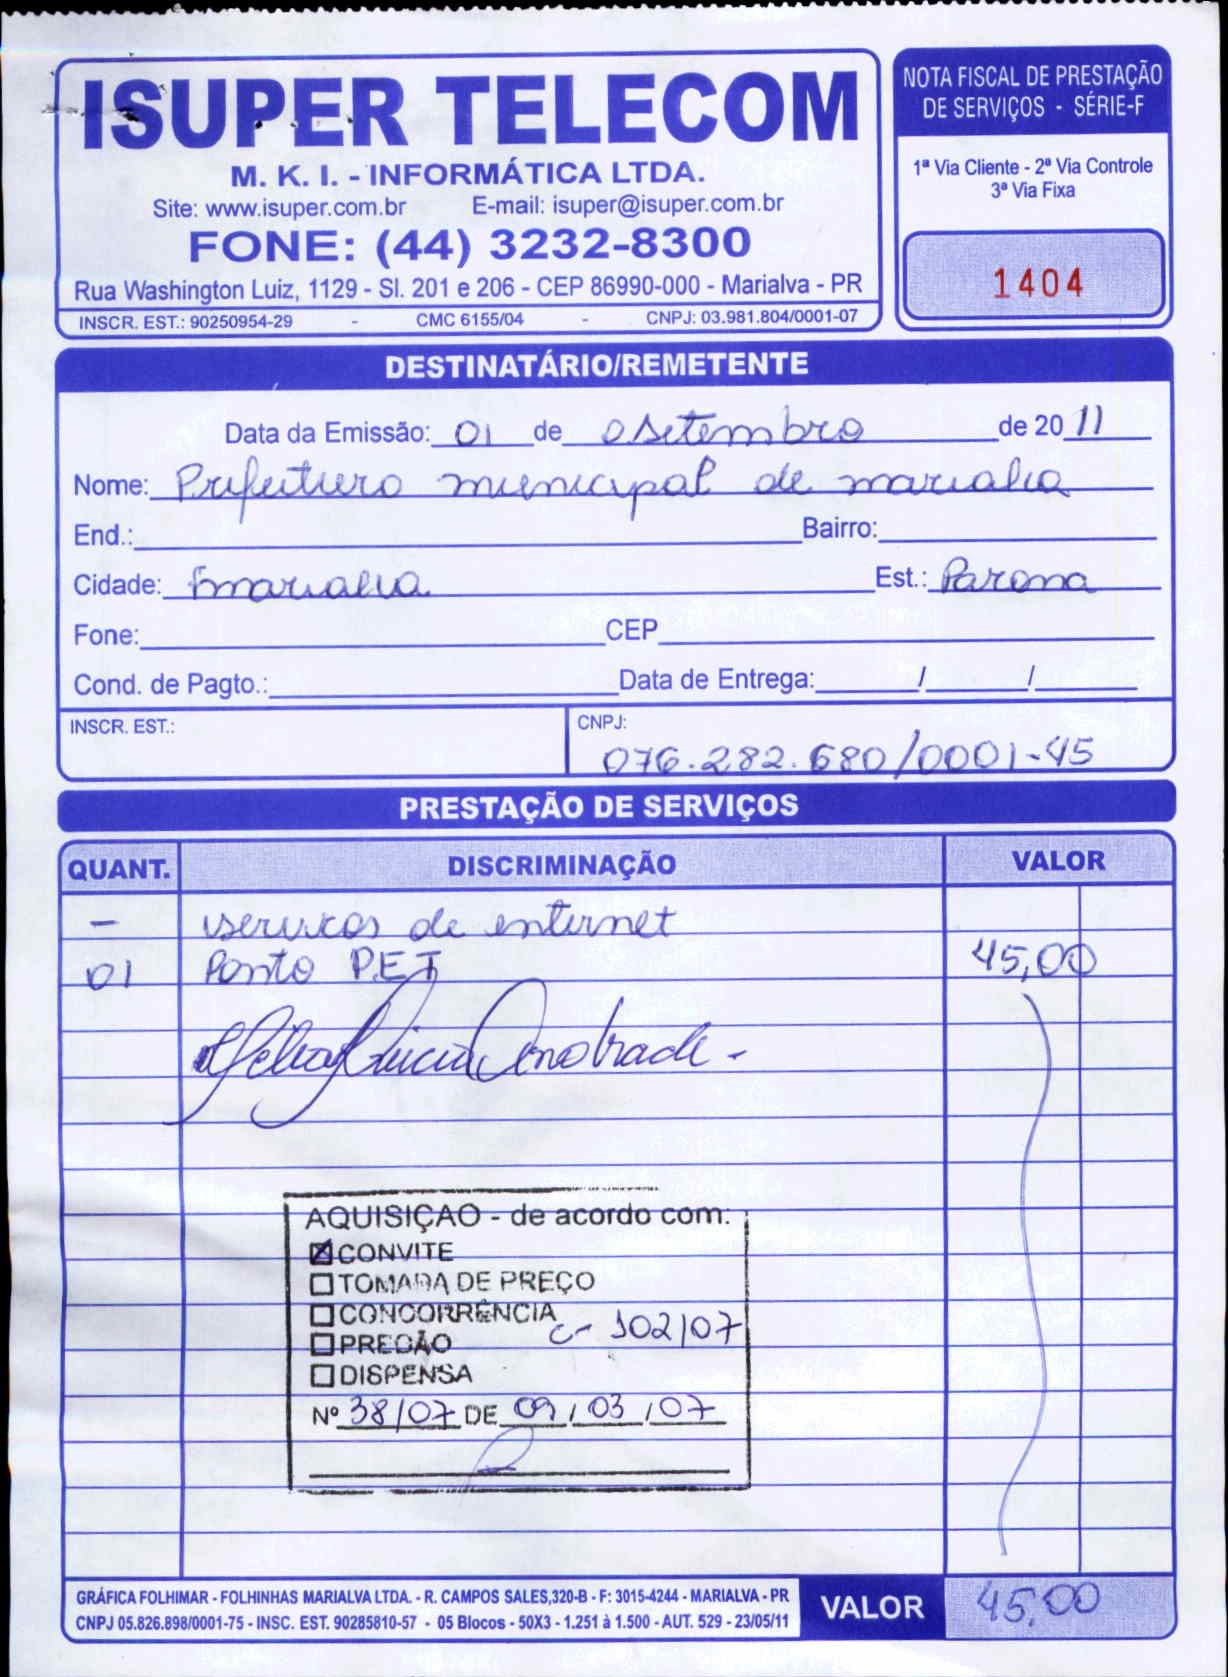 ISUPER TELECOM
M. K. I. - INFORMÁTICA LTDA.
Site: www.isuper.com.br E-mail: isuper@isuper.com.br
FONE: (44) 3232-8300
Rua Washington Luiz, 1129 - Sl. 201 e 206 - CEP 86990-000 - Marialva - PR
INSCR. EST.: 90250954-29 - CMC 6155/04 - CNPJ: 03.981.804/0001-07
NOTA FISCAL DE PRESTAÇÃO
DE SERVIÇOS - SÉRIE-F
1ª Via Cliente - 2ª Via Controle
3ª Via Fixa
1404
DESTINATÁRIO/REMETENTE
Data da Emissão: 01 de setembro de 20 11
Nome: Prefeitura municipal de marialva
End.: Bairro:
Cidade: marialva Est.: Parana
Fone: CEP
Cond. de Pagto.: Data de Entrega: / /
INSCR. EST.: CNPJ:
076.282.680/0001-45
PRESTAÇÃO DE SERVIÇOS
QUANT. DISCRIMINAÇÃO VALOR
- servicos de enternet
01 Ponto P.E.T 45,00
Andrade
AQUISIÇÃO - de acordo com:
☒ CONVITE
☐ TOMADA DE PREÇO
☐ CONCORRÊNCIA
C- 102/07
☐ PREGÃO
☐ DISPENSA
Nº 38/07 DE 09/03/07
GRÁFICA FOLHIMAR - FOLHINHAS MARIALVA LTDA. - R. CAMPOS SALES,320-B - F: 3015-4244 - MARIALVA - PR
CNPJ 05.826.898/0001-75 - INSC. EST. 90285810-57 - 05 Blocos - 50X3 - 1.251 à 1.500 - AUT. 529 - 23/05/11
VALOR 45,00